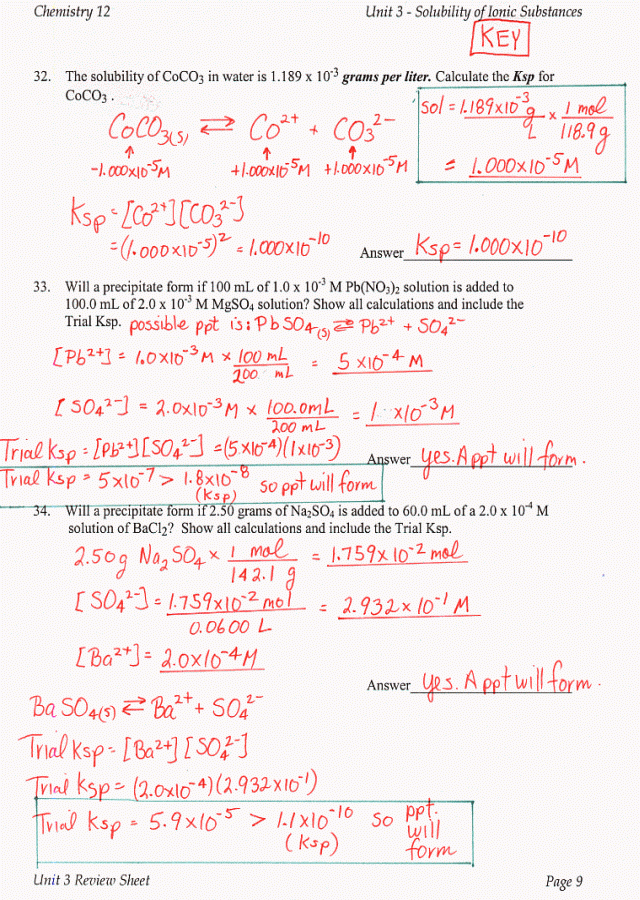 Chemistry 12 Unit 3 - Solubility of Ionic Substances
KEY
32. The solubility of CoCO₃ in water is 1.189 x 10⁻³ grams per liter. Calculate the Ksp for
CoCO₃ .
sol = 1.189x10⁻³ g/L x 1 mol/118.9 g
= 1.000x10⁻⁵ M
CoCO₃(s) ⇄ Co²⁺ + CO₃²⁻
↑ ↑ ↑
-1.000x10⁻⁵M +1.000x10⁻⁵M +1.000x10⁻⁵M
Ksp = [Co²⁺][CO₃²⁻]
= (1.000x10⁻⁵)² = 1.000x10⁻¹⁰
Answer Ksp = 1.000x10⁻¹⁰
33. Will a precipitate form if 100 mL of 1.0 x 10⁻³ M Pb(NO₃)₂ solution is added to
100.0 mL of 2.0 x 10⁻³ M MgSO₄ solution? Show all calculations and include the
Trial Ksp. possible ppt is: PbSO₄(s) ⇄ Pb²⁺ + SO₄²⁻
[Pb²⁺] = 1.0x10⁻³ M x 100 mL/200 mL = 5 x10⁻⁴ M
[SO₄²⁻] = 2.0x10⁻³ M x 100.0mL/200 mL = 1 x10⁻³ M
Trial Ksp = [Pb²⁺][SO₄²⁻] = (5x10⁻⁴)(1x10⁻³)
Answer yes. A ppt will form.
Trial Ksp = 5x10⁻⁷ > 1.8x10⁻⁸ so ppt will form
(Ksp)
34. Will a precipitate form if 2.50 grams of Na₂SO₄ is added to 60.0 mL of a 2.0 x 10⁻⁴ M
solution of BaCl₂? Show all calculations and include the Trial Ksp.
2.50g Na₂SO₄ x 1 mol/142.1 g = 1.759x10⁻² mol
[SO₄²⁻] = 1.759x10⁻² mol/0.0600 L = 2.932 x 10⁻¹ M
[Ba²⁺] = 2.0x10⁻⁴ M
Answer yes. A ppt will form.
BaSO₄(s) ⇄ Ba²⁺ + SO₄²⁻
Trial Ksp = [Ba²⁺][SO₄²⁻]
Trial Ksp = (2.0x10⁻⁴)(2.932x10⁻¹)
Trial Ksp = 5.9x10⁻⁵ > 1.1x10⁻¹⁰ so ppt.
(Ksp) will
form
Unit 3 Review Sheet Page 9